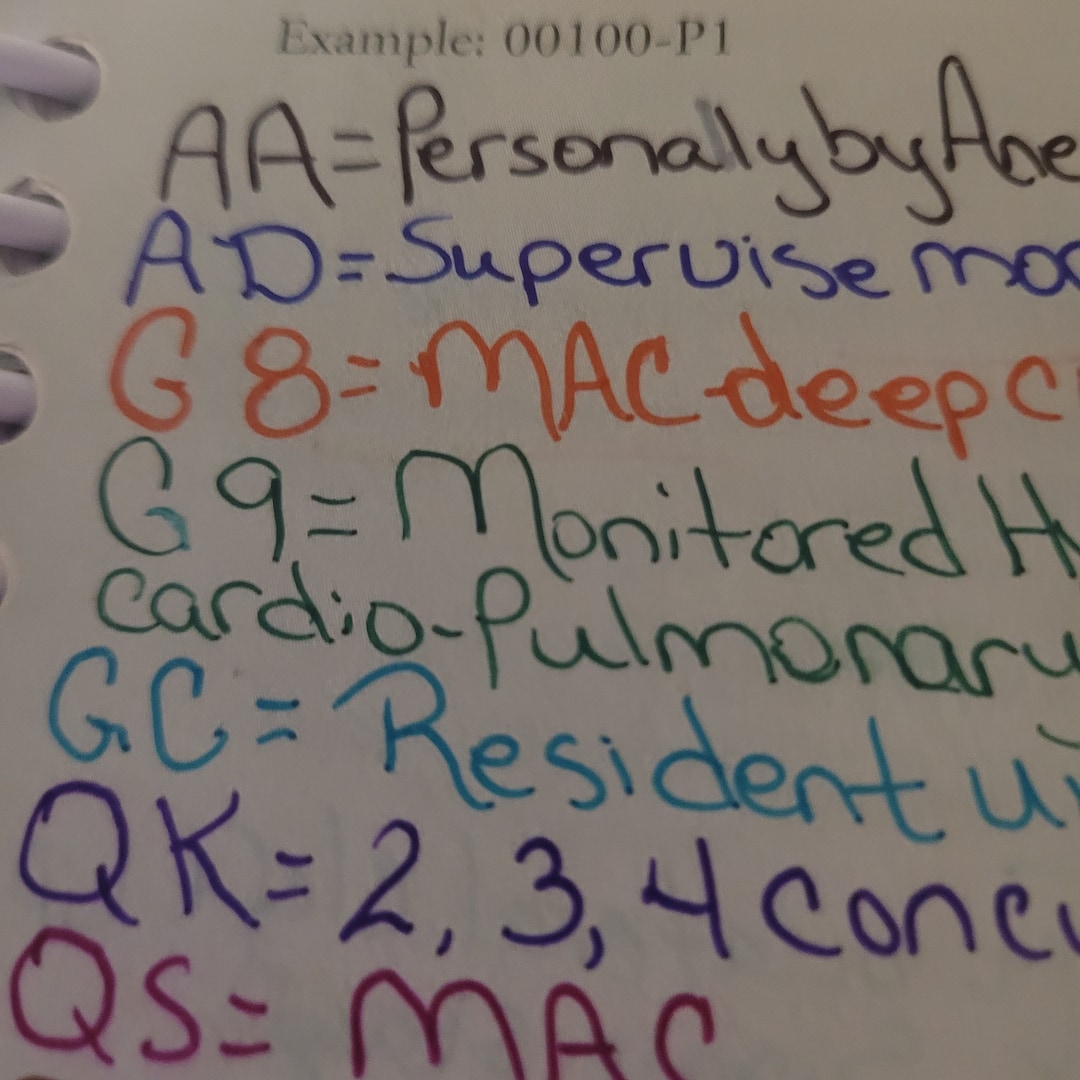 Example: 00100-P1
AA=Personally by Ane
AD=Supervise mo
G8=MAC deep c
G9=Monitored H
cardio-Pulmonary
GC=Resident u
QK=2, 3, 4 conc
QS=MAC